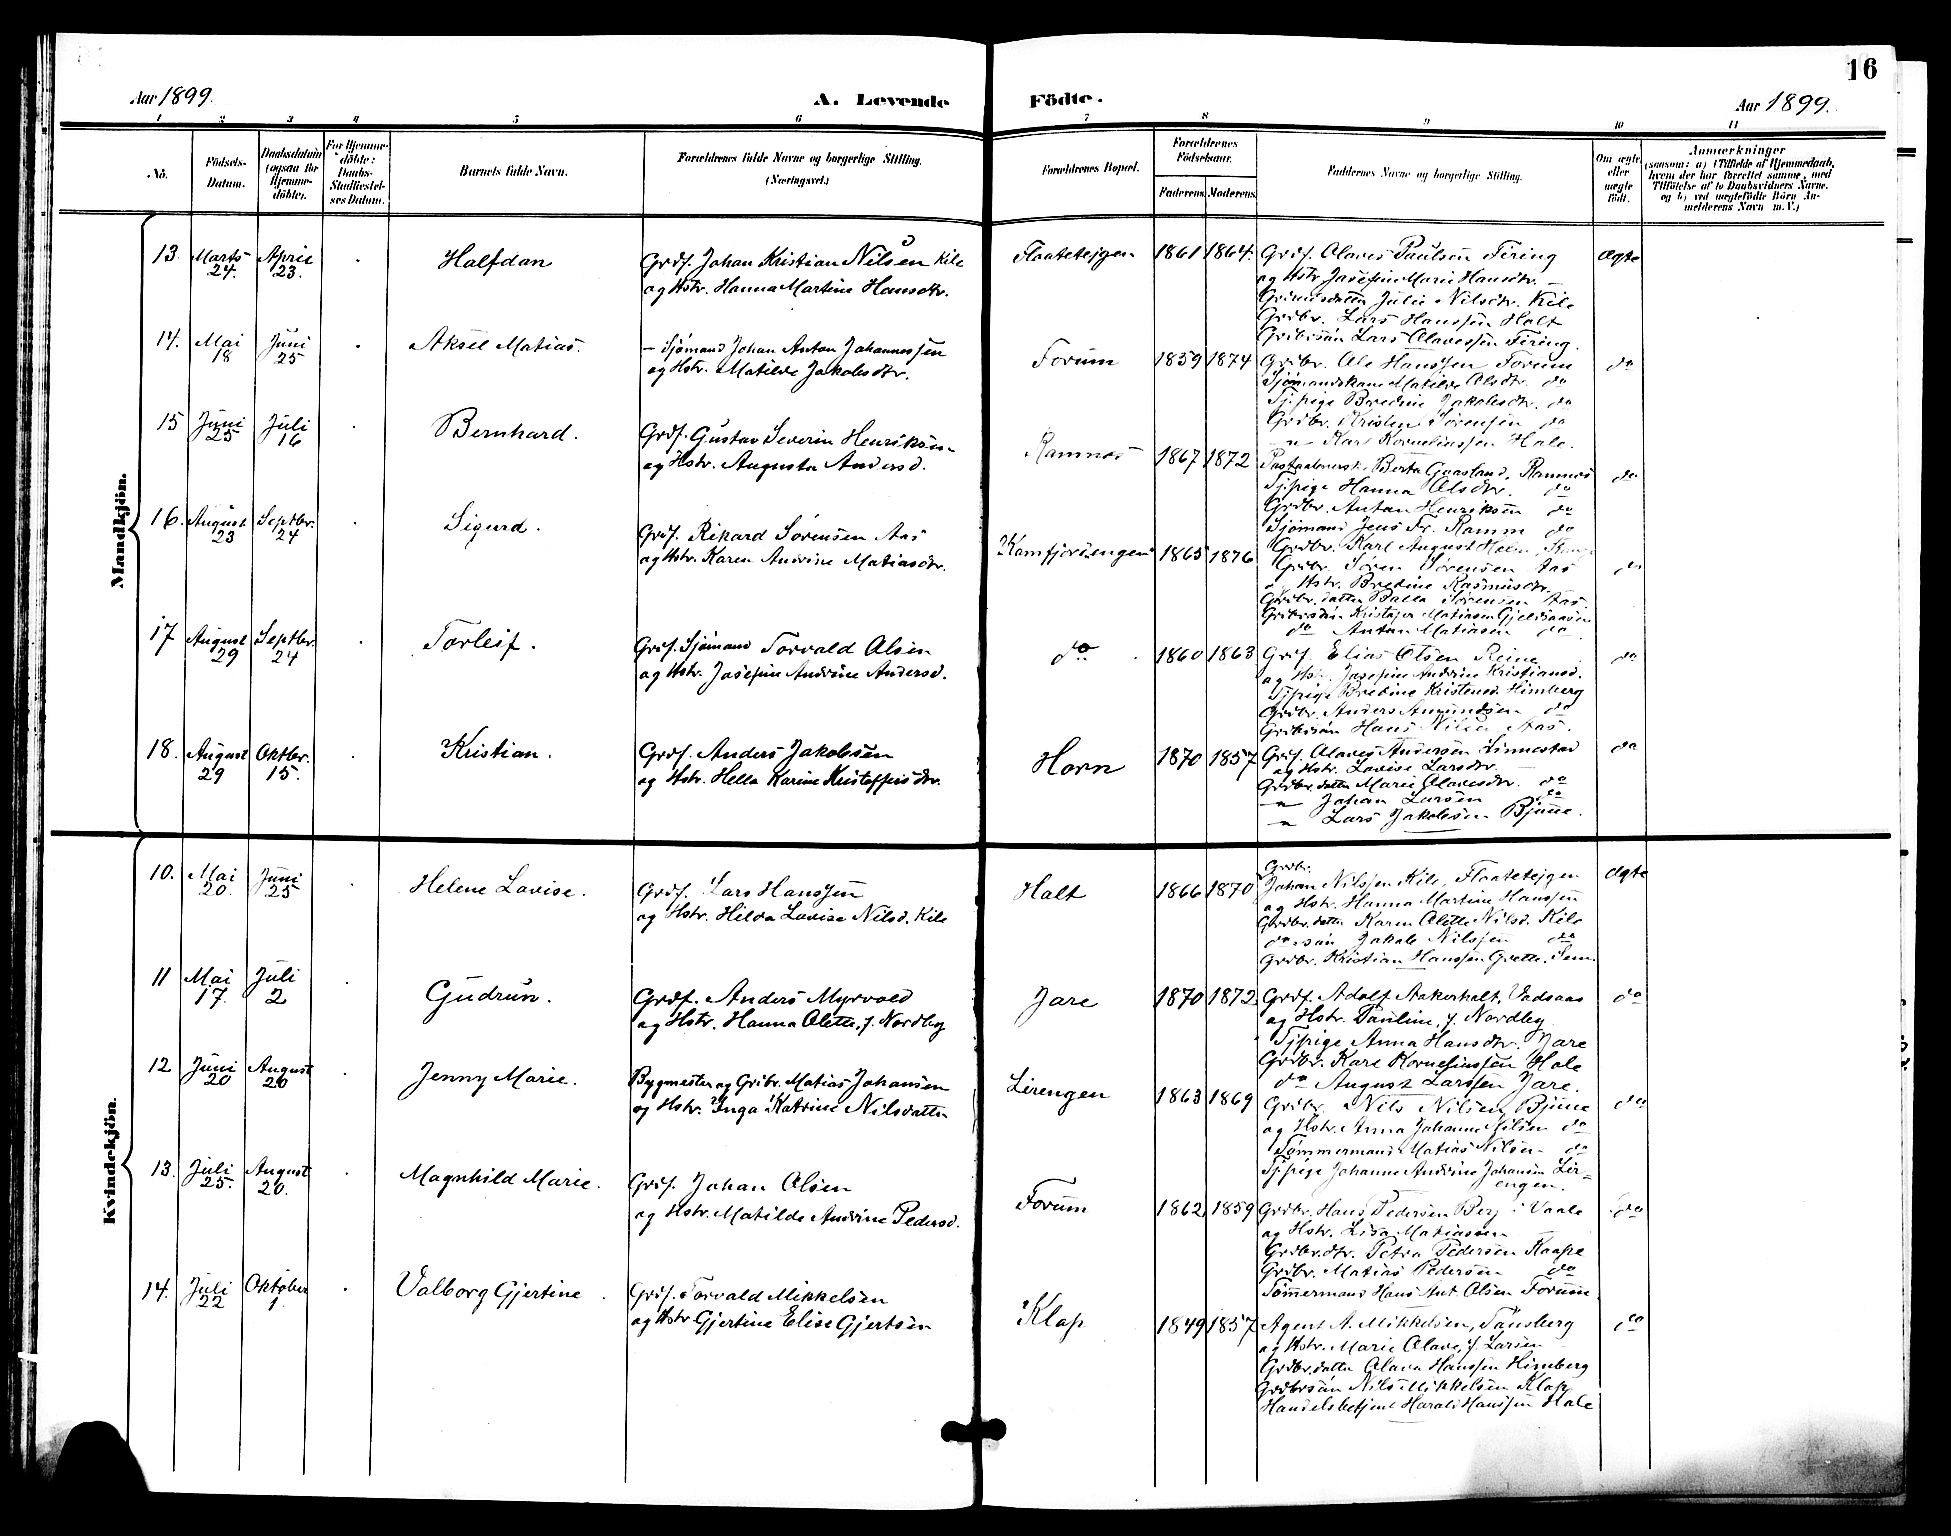 16
Aar 1899.
A. Levende Födte.
Aar 1899.
1 2 3 4 5 6 7 8 9 10 11
No.
Födsels-Datum.
Daabsdatum (ogsaa for Hjemme-döbte).
For Hjemme-döbte: Daabs-Stadfæstel-ses Datum.
Barnets fulde Navn.
Forældrenes fulde Navne og borgerlige Stilling. (Næringsvei.)
Forældrenes Bopæl.
Forældrenes Födselsaar.
Faderens. Moderens.
Faddernes Navne og borgerlige Stilling.
Om ægte eller uægte født.
Anmærkninger
(saasom: a) i Tilfælde af Hjemmedaab,
hvem der har forrettet samme, med
Tilföielse af to Daabsvidners Navne.
og b) ved uægtefödte Börn An-
melderens Navn m.V.)
Mandkjön.
13. Marts 24. April 23. Halfdan
Grdf. Johan Kristian Nilsen Kile
og Hstr. Hanna Martine Hansdtr.
Flaateteigen 1861 1864.
Grdf. Olaves Paulsen Firing
og Hstr. Josefine Marie Hansdtr.
Julie Nilsdtr. Kile
Grdbr. Lars Hanssen Holt
Grdbrsøn Lars Olavessen Firing.
Ægte
14. Mai 18 Juni 25 Aksel Matias.
Sjømand Johan Anton Johannessen
og Hstr. Matilde Jakobsdtr.
Forum 1859 1874
Grdbr. Ole Hanssen Forum
Sjømandskone Matilde Olsdtr. do
Tj.pige Bredine Jakobsdtr. do
Grdbr. Kristen Sørensen do
-"- Karl Korneliussen Hole.
do
15 Juni 25 Juli 16 Bernhard.
Grdf. Gustav Severin Henriksen
og Hstr. Augusta Andersd.
Ramnæs 1867 1872
Berta Gaasland, Ramnæs
Tj.pige Hanna Olsdtr. do
Grdbr. Anton Henriksen do
Sjømand Jens Fr. Ramm do
Grdbr. Karl August Helen
do
16. August 23 Septbr. 24 Sigurd.
Grdf. Rikard Sørensen Aas
og Hstr. Karen Andrine Matiasdtr.
Kamfjordengen 1865 1876
Grdbr. Søren Sørensen Aas
Hstr. Bredine Rasmusdtr.
Grdbr. datter Balla Sørensen Aas.
Grdbrsøn Kristofer Matiasen
do Anton Matiasen do
do
17 August 29 Septbr. 24 Torleif.
Grdf. Sjømand Torvald Olsen
og Hstr. Josefine Andrine Andersd.
do. 1860 1863
Grdf. Elias Olsen Reine
og Hstr. Josefine Andrine Kristiansd.
Tj.pige Bredine Kristensd. Himberg
Grdbr. Anders Amundsen do
Grdbrsøn Hans Nilsen Aas.
do
18. August 29 Oktbr. 15. Kristian.
Grdf. Anders Jakobsen
og Hstr. Hella Karine Kristoffersdtr.
Horn 1870 1857
Grdf. Olaves Andersen Linnestad
og Hstr. Lovise Larsdtr.
Grdbr. datter Marie Olavesdtr. do
-"- Johan Larsen do
-"- Lars Jakobsen Bjune.
do
Kvindekjön.
10. Mai 20. Juni 25 Helene Lovise.
Grdf. Lars Hanssen
og Hstr. Hilda Lovise Nilsd. Kile
Holt 1866 1870
Grdbr.
Johan Nilssen Kile, Flaateteigen
og Hstr. Hanna Martine Hanssen
Grdbr. datter Karen Olette Nilsd. Kile
do søn Jakob Nilssen do
Grdbr. Kristian Hanssen Grette, Sem.
Ægte
11 Mai 17. Juli 2 Gudrun.
Grdf. Anders Myrvold
og Hstr. Hanna Olette, f. Nordby
Jare 1870 1872
Grdf. Adolf Aakerholt, Vadsaas
og Hstr. Pauline, f. Nordby
Tj.pige Anna Hansdtr. Jare
Grdbr. Karl Korneliussen Hole
do August Larssen Jare.
do
12 Juni 20 August 20 Jenny Marie.
Bygmester og Grdbr. Matias Johansen
og Hstr. Inga Katrine Nilsdatter
Lirengen 1863 1869
Grdbr. Nils Nilsen Bjune
og Hstr. Anna Johanne Nilsen do
Tømmermand Matias Nilsen do
Tj.pige Johanne Andrine Johansen Lir-
engen.
do
13. Juli 25. August 20. Magnhild Marie.
Grdf. Johan Olsen
og Hstr. Matilde Andrine Pedersd.
Forum 1862 1859
Grdbr. Hans Pedersen Berg i Vaale
og Hstr. Lisa Matiassen
Grdbr.dtr. Petra Pedersen Kaape
Grdbr. Matias Pedersen do
Tømmermand Hans Ant. Olsen Forum.
do
14. Juli 22 Oktober 1. Valborg Gjertine.
Grdf. Torvald Mikkelsen
og Hstr Gjertine Elise Gjertsen
Klop 1849 1857
Agent A. Mikkelsen, Tønsberg
og Hstr. Marie Olave, f. Larsen
Grdbr. datter Olava Hanssen Himberg
Grdbrsøn Nils Mikkelsen Klop
Handelsbetjent Harald Hanssen Hole
do